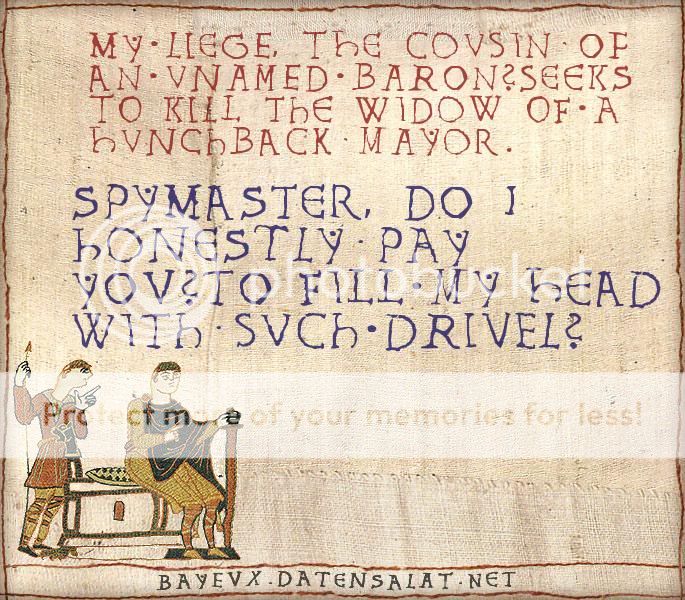 MY·LIEGE, ThE COVSIN·OF
AN·VNAMED·BARON?SEEKS
TO KILL ThE WIDOW OF·A
hVNChBACK·MAYOR.
SPYMASTER, DO I
hONESTLY·PAY
YOV?TO FILL·MY hEAD
WITh·SVCh·DRIVEL?
photobucket
Protect more of your memories for less!
BAYEVX·DATENSALAT·NET